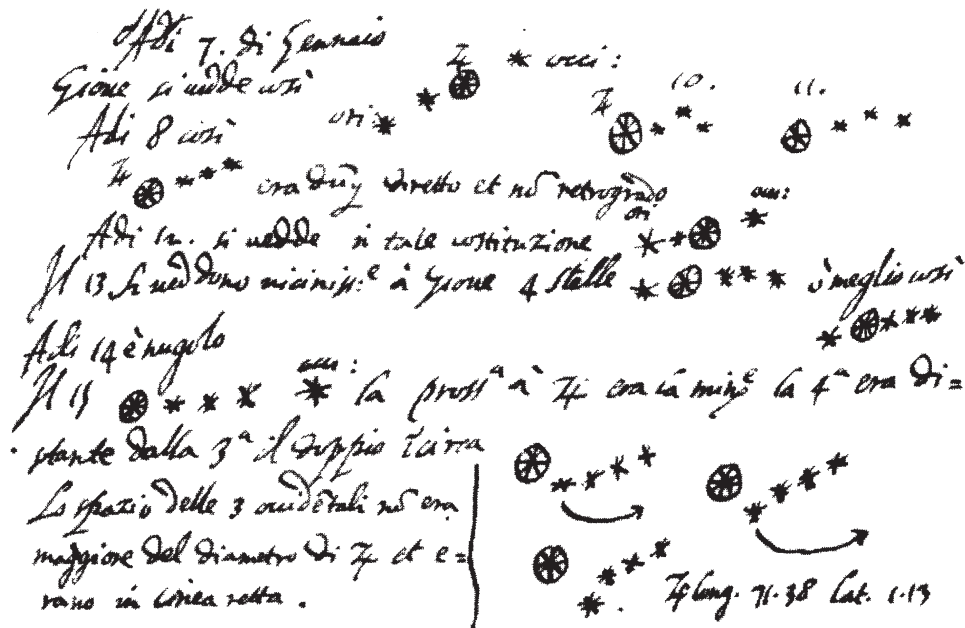 Adi 7. di Gennaio
Gioue si uedde così ori: ♃ occi:
Adi 8 così ♃ 10. 11.
♃ era dūq diretto et nō retrogrado
Adi 12. si uedde in tale costituzione ori: occ:
Il 13 si ueddono uiciniss:e à Gioue 4 stelle ò meglio così
Adi 14 è nugolo
Il 15 occ: la pross.a à ♃ era la min.e la 4.a era di=
stante dalla 3.a il doppio circa
Lo spazio delle 3 occidētali nō era
maggiore del diametro di ♃ et e=
rano in linea retta.
♃ long. 71.38 lat. 1.13